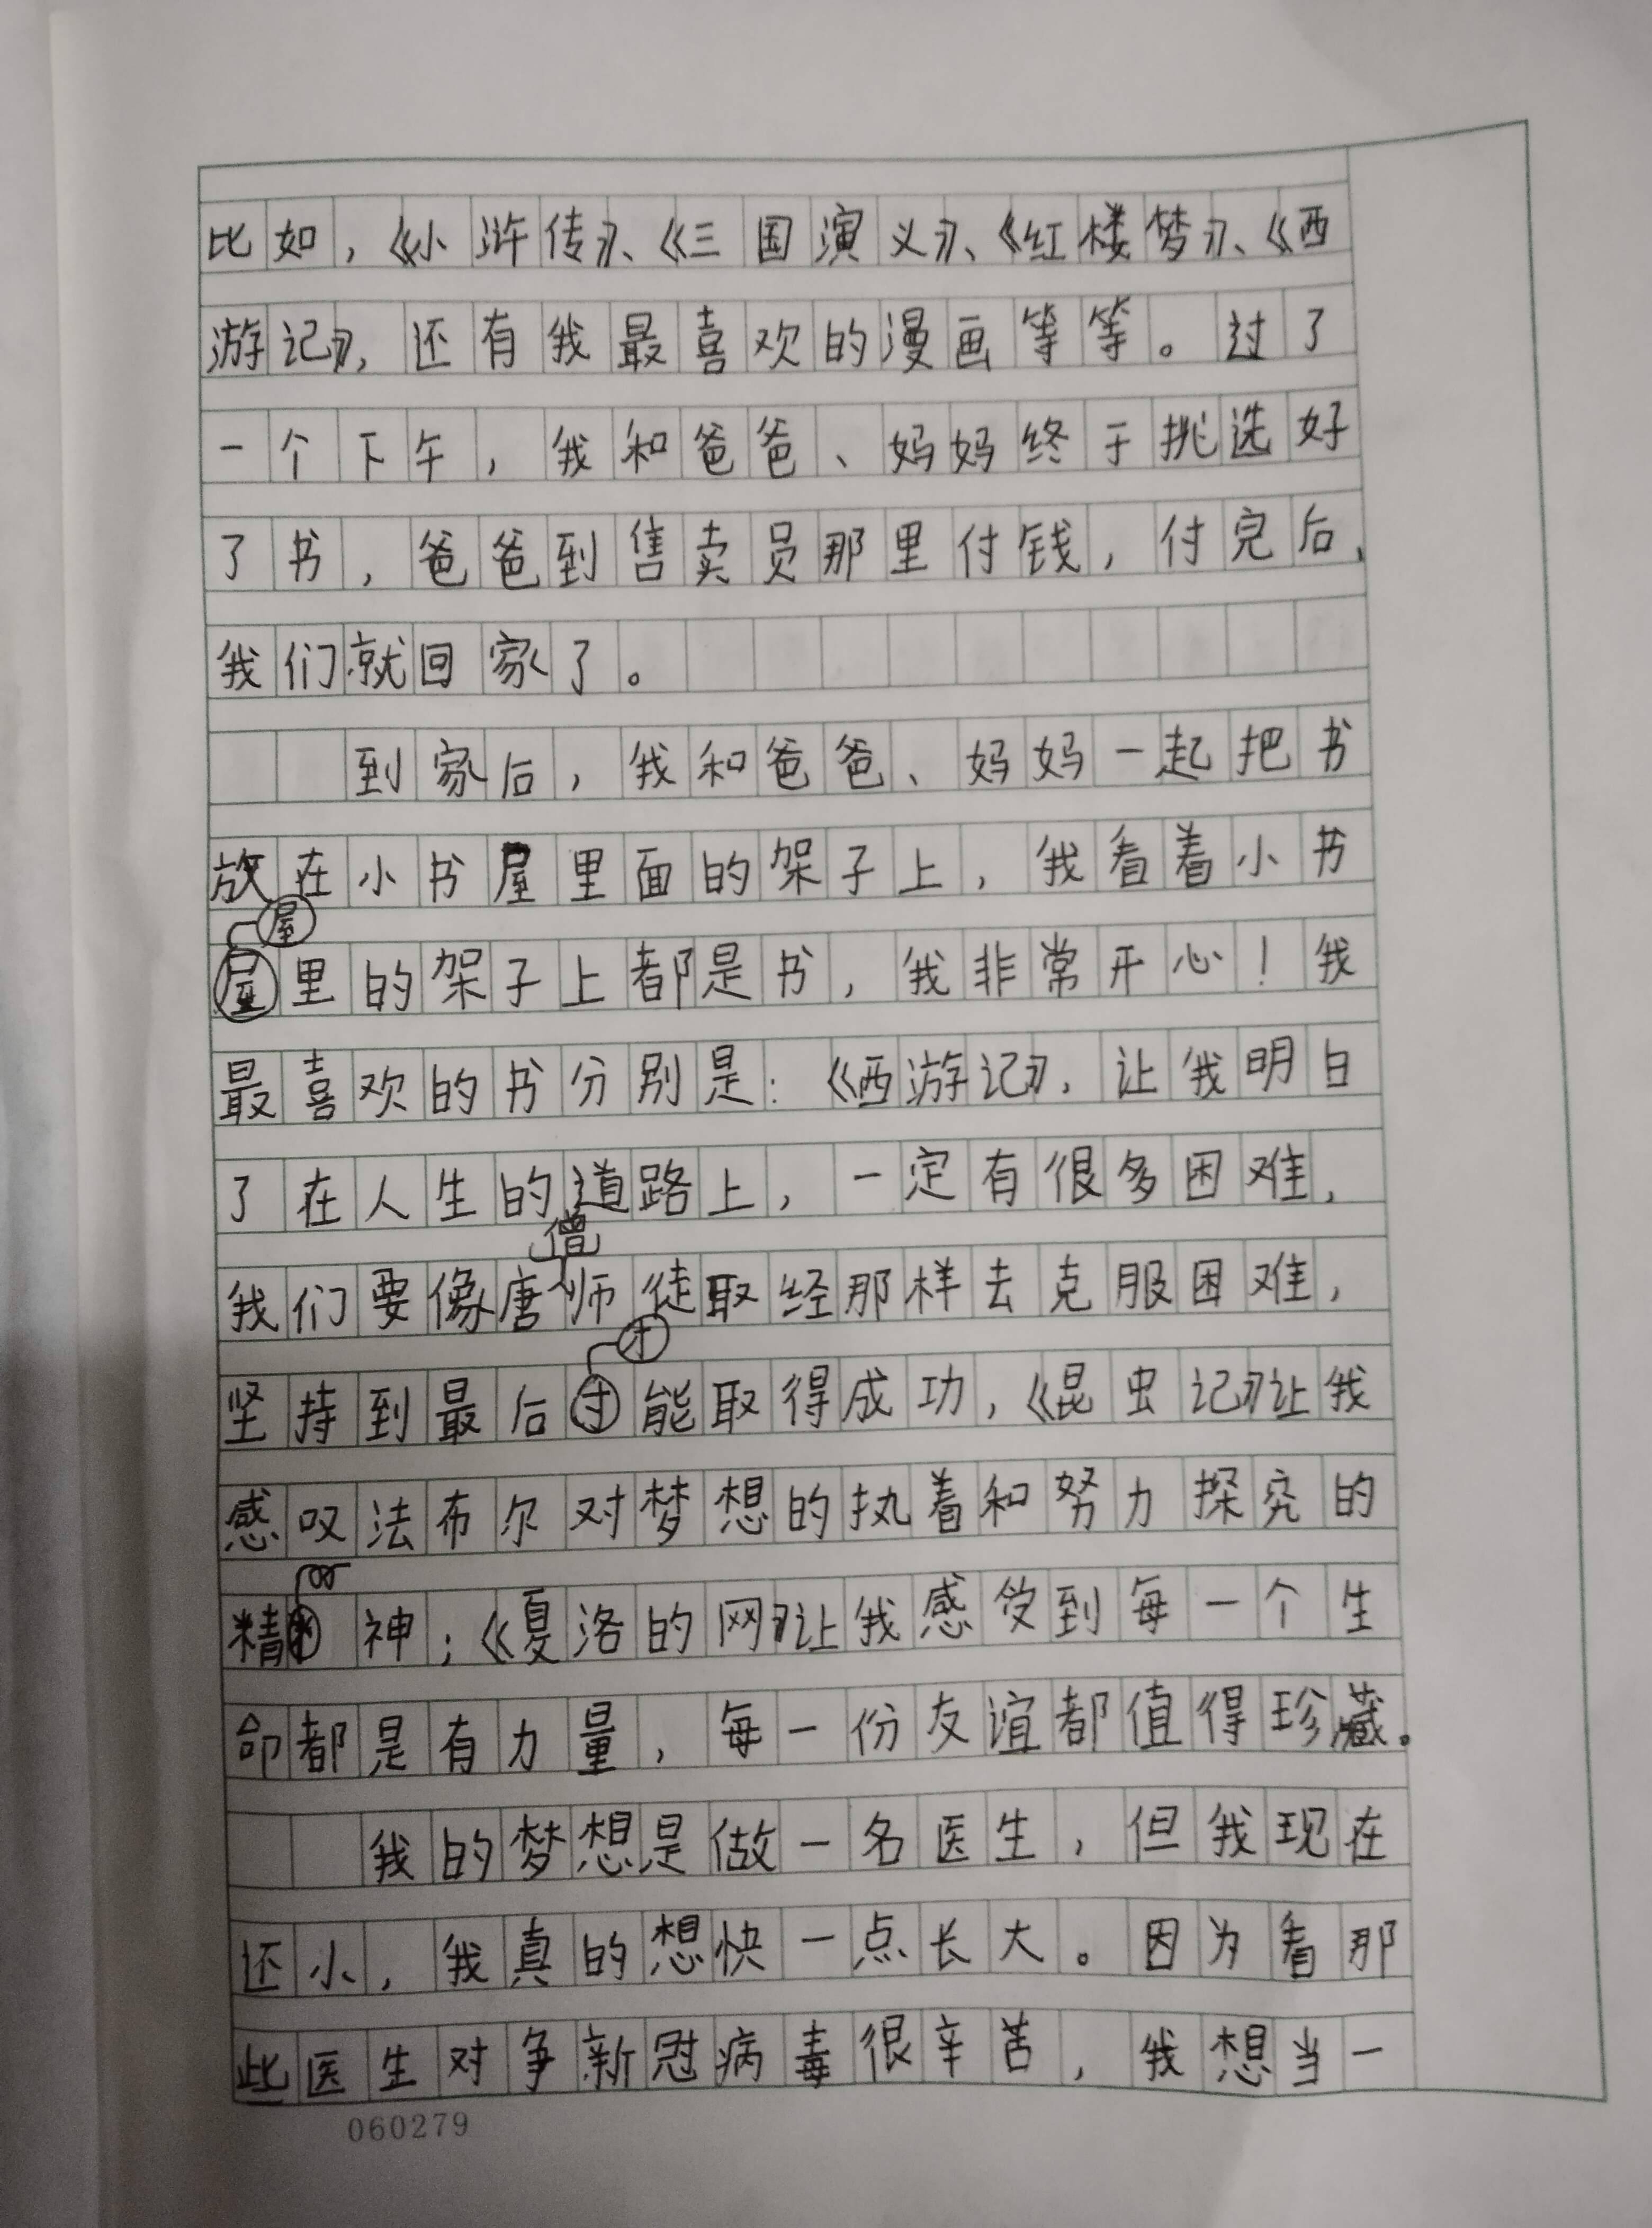 比如，《小浒传》、《三国演义》、《红楼梦》、《西
游记》，还有我最喜欢的漫画等等。过了
一个下午，我和爸爸、妈妈终于挑选好
了书，爸爸到售卖员那里付钱，付完后，
我们就回家了。
到家后，我和爸爸、妈妈一起把书
放在小书屋里面的架子上，我看着小书
屋里的架子上都是书，我非常开心！我
最喜欢的书分别是：《西游记》，让我明白
了在人生的道路上，一定有很多困难，
我们要像唐僧师徒取经那样去克服困难，
坚持到最后才能取得成功，《昆虫记》让我
感叹法布尔对梦想的执着和努力探究的
精神；《夏洛的网》让我感受到每一个生
命都是有力量，每一份友谊都值得珍藏。
我的梦想是做一名医生，但我现在
还小，我真的想快一点长大。因为看那
些医生对争新冠病毒很辛苦，我想当一
060279